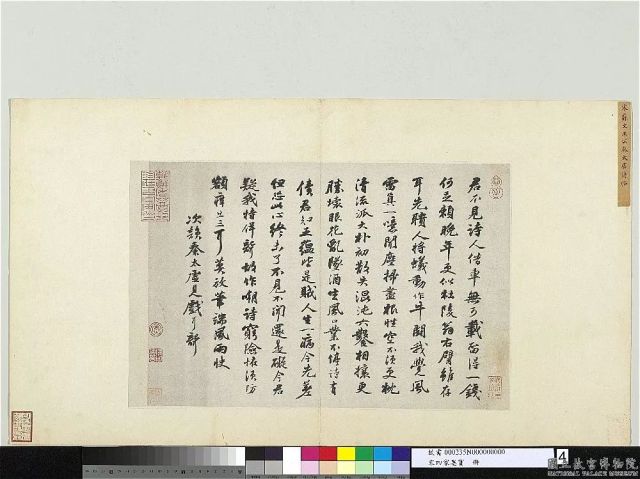 君不見詩人借車無可載留得一錢
何足賴晚年更似杜陵翁右臂雖存
耳先聵人將蟻動作牛鬪我覺風
雷真一噫聞塵掃盡根性空不須更枕
清流派大朴初散失混沌六鑿相攘更
勝壞眼花亂墜酒生風口業不停詩有
債君知五蘊皆是賊人生一病今先差
但恐此心終未了不見不聞還是礙今君
疑我特佯聾故作嘲詩窮險怪須防
額癢出三耳莫放筆端風雨快
次韻秦太虛見戲耳聾
000235N000000000
宋四家墨寶 冊
4
國立故宮博物院
NATIONAL PALACE MUSEUM